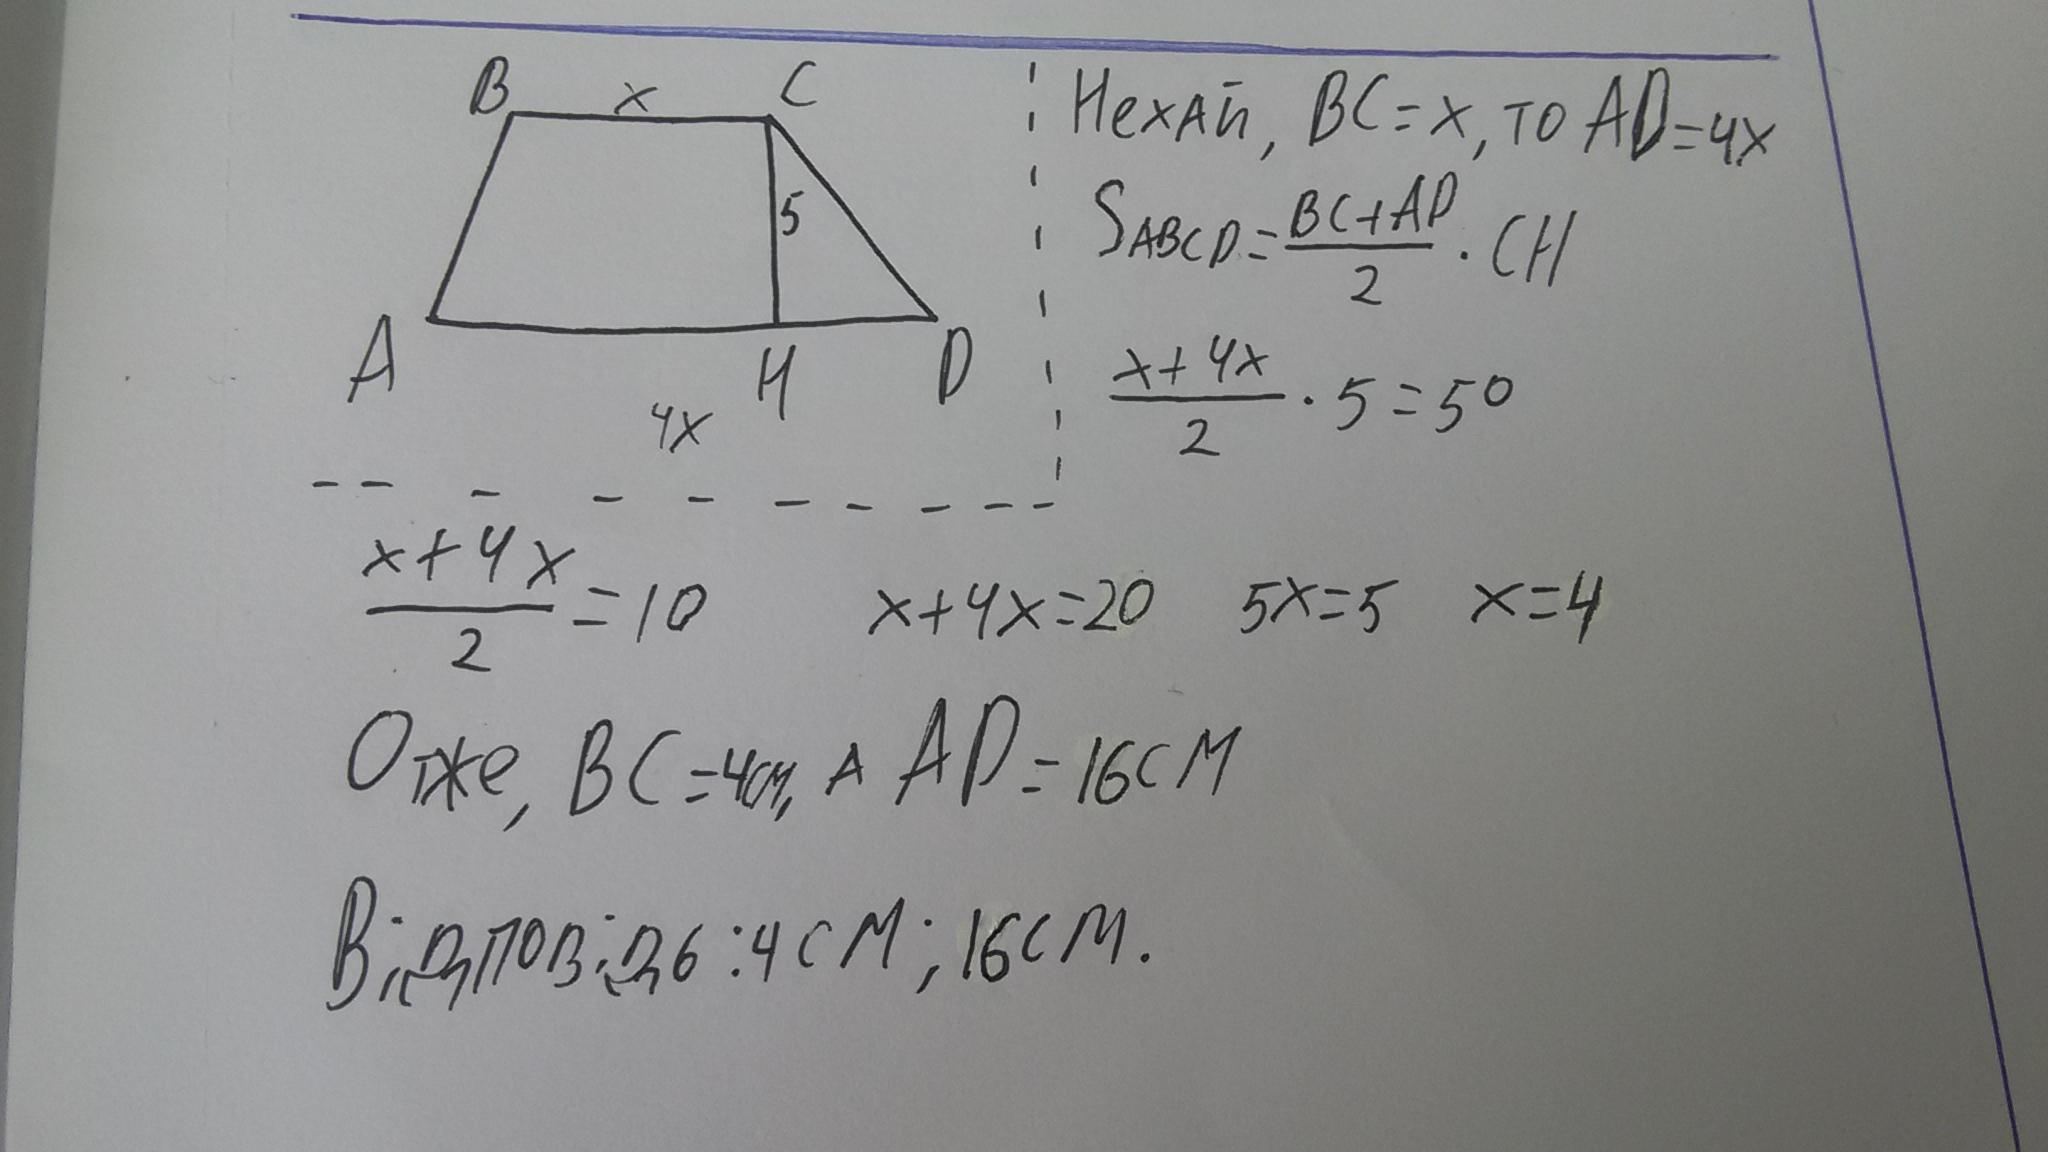 B x C
5
A H D
4x
Нехай, BC=x, то AD=4x
S_ABCD = (BC+AD)/2 · CH
(x+4x)/2 · 5=50
(x+4x)/2 =10 x+4x=20 5x=5 x=4
Отже, BC=4см, а AD=16см
Відповідь: 4см; 16см.